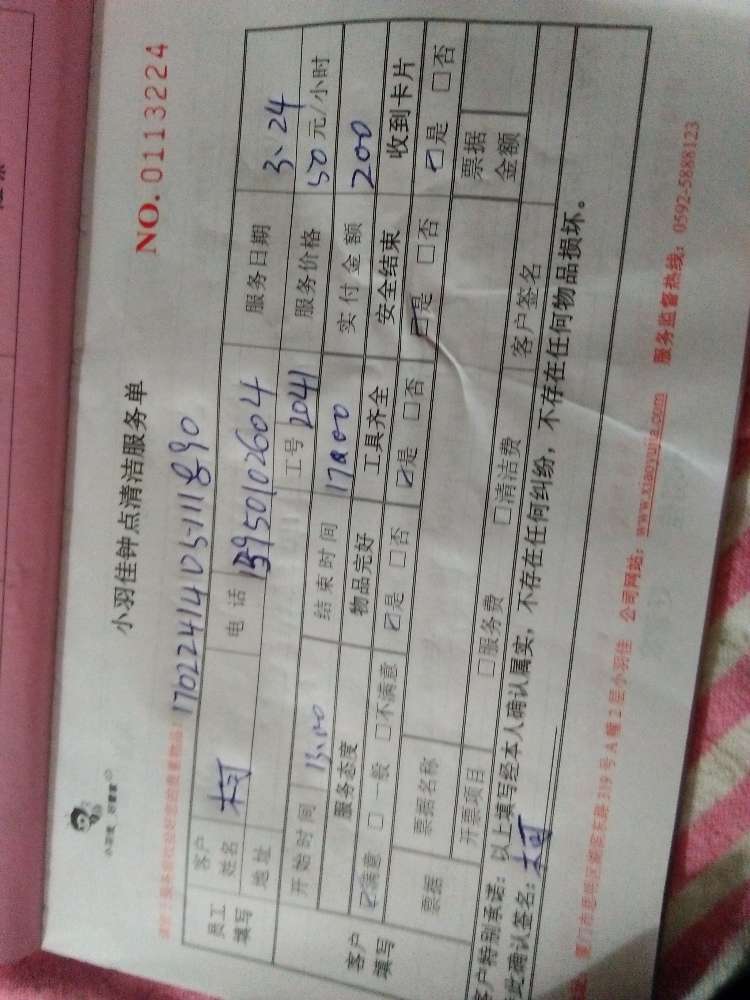 小羽佳 好管家
小羽佳钟点清洁服务单
NO. 0113224
员工填写
客户姓名 柯
电话 13950102604
服务日期 3、24
地址
工号 2041
服务价格 50元/小时
客户填写
开始时间 13:00
结束时间 17:00
实付金额 200
服务态度 物品完好 工具齐全 安全结束 收到卡片
☑满意 □一般 □不满意 ☑是 □否 ☑是 □否 ☑是 □否 ☑是 □否
票据 票据名称 票据金额
开票项目 □服务费 □清洁费 客户签名
客户特别承诺：以上填写经本人确认属实，不存在任何纠纷，不存在任何物品损坏。
此确认签名：柯
厦门市思明区湖滨东路319号A幢2层小羽佳 公司网站：www.xiaoyujia.com 服务监督热线：0592-5888123